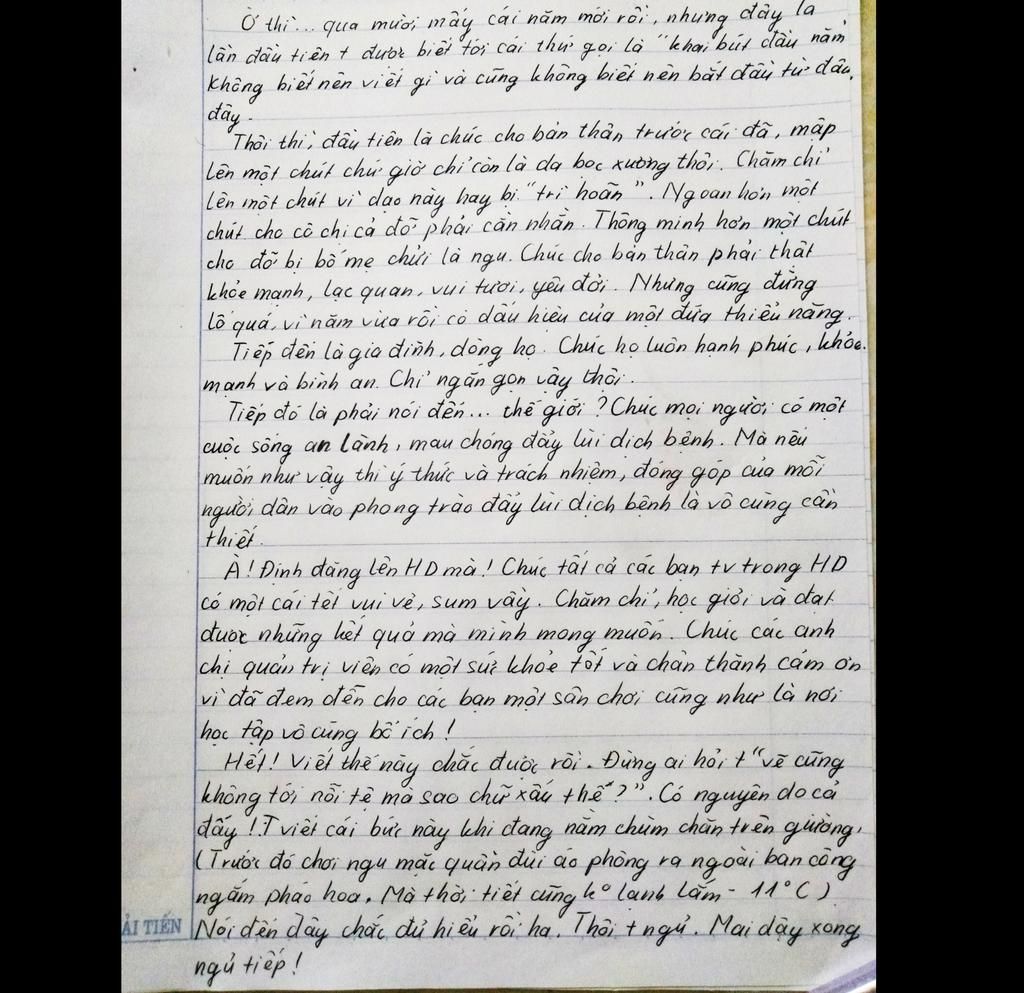 Ờ thì... qua mười mấy cái năm mới rồi, nhưng đây là
lần đầu tiên t được biết tới cái thứ gọi là "khai bút đầu năm
Không biết nên viết gì và cũng không biết nên bắt đầu từ đâu
đây.
Thôi thì, đầu tiên là chúc cho bản thân trước cái đã, mập
lên một chút chứ giờ chỉ còn là da bọc xương thôi. Chăm chỉ
lên một chút vì dạo này hay bị "trì hoãn". Ngoan hơn một
chút cho cô chị cả đỡ phải cằn nhằn. Thông minh hơn một chút
cho đỡ bị bố mẹ chửi là ngu. Chúc cho bản thân phải thật
khỏe mạnh, lạc quan, vui tươi, yêu đời. Nhưng cũng đừng
lố quá, vì năm vừa rồi có dấu hiệu của một đứa thiểu năng.
Tiếp đến là gia đình, dòng họ. Chúc họ luôn hạnh phúc, khỏe
mạnh và bình an. Chỉ ngắn gọn vậy thôi.
Tiếp đó là phải nói đến... thế giới? Chúc mọi người có một
cuộc sống an lành, mau chóng đẩy lùi dịch bệnh. Mà nếu
muốn như vậy thì ý thức và trách nhiệm, đóng góp của mỗi
người dân vào phong trào đẩy lùi dịch bệnh là vô cùng cần
thiết.
À! Định đăng lên HD mà! Chúc tất cả các bạn tv trong HD
có một cái tết vui vẻ, sum vầy. Chăm chỉ, học giỏi và đạt
được những kết quả mà mình mong muốn. Chúc các anh
chị quản trị viên có một sức khỏe tốt và chân thành cảm ơn
vì đã đem đến cho các bạn một sân chơi cũng như là nơi
học tập vô cùng bổ ích!
Hết! Viết thế này chắc được rồi. Đừng ai hỏi t "vẽ cũng
không tới nỗi tệ mà sao chữ xấu thế?". Có nguyên do cả
đấy! T viết cái bức này khi đang nằm chùm chăn trên giường.
(Trước đó chơi ngu mặc quần đùi áo phông ra ngoài ban công
ngắm pháo hoa. Mà thời tiết cũng ko lạnh lắm - 11°C)
Nói đến đây chắc đủ hiểu rồi ha. Thôi t ngủ. Mai dậy xong
ngủ tiếp!
ẢI TIẾN